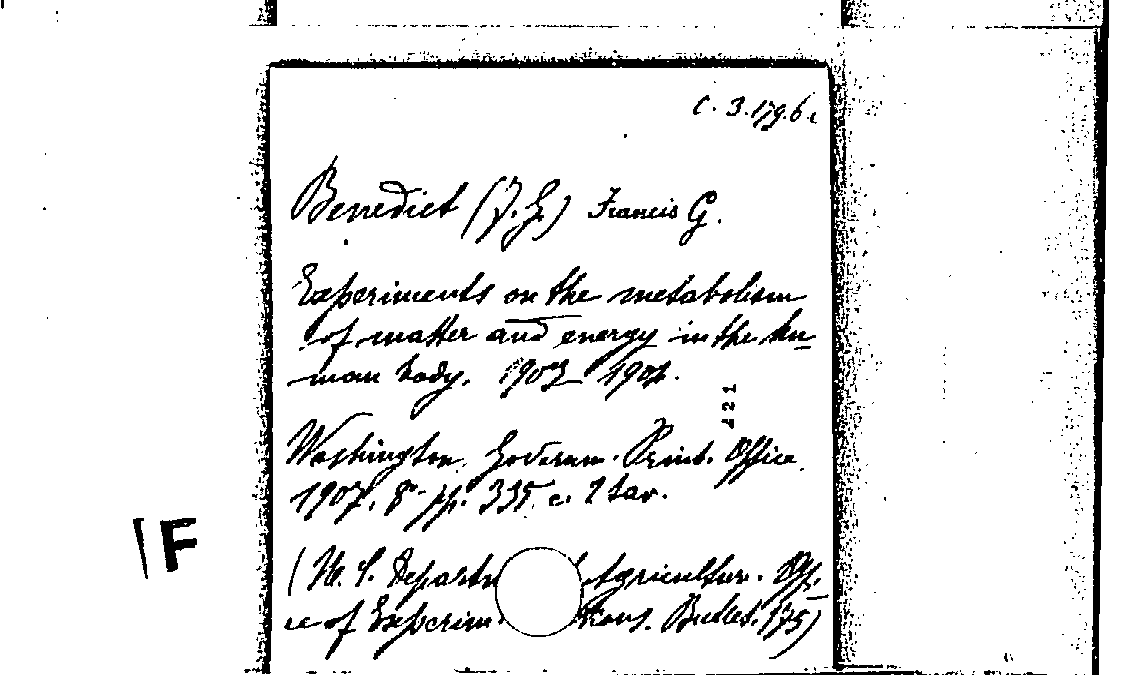 C. 3.179.6c
Benedict (F. G.) Francis G.
Experiments on the metabolism
of matter and energy in the hu=
man body. 1903-1904.
121
Washington, Governm. Print. Office
1907. 8° pp. 335 c. 2 tav.
(U. S. Departm Agricultur. Offi
ce of Experim tions. Bullet. 175)
1F